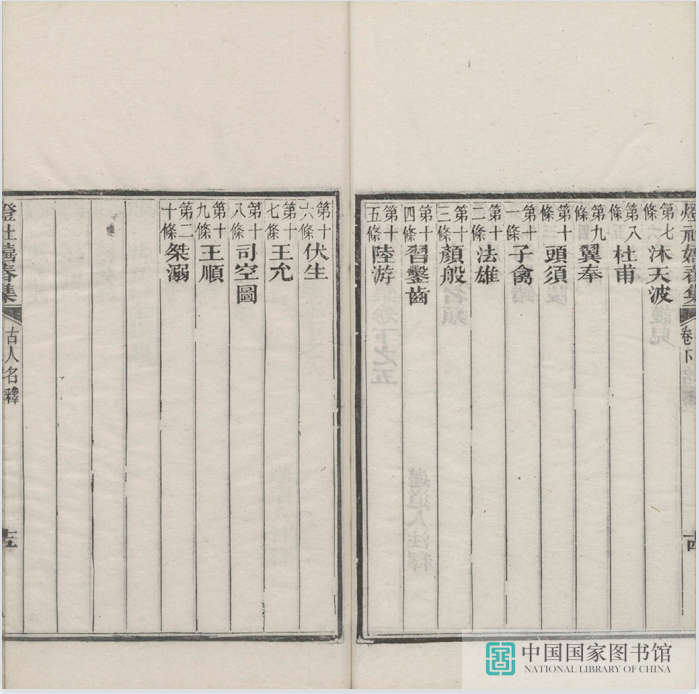 燈社嬉春集 卷下
第七條沐天波
第八條杜甫
第九條翼奉
第十條頭須
第十一條子禽
第十二條法雄
第十三條顏般
第十四條習鑿齒
第十五條陸游
第十六條伏生
第十七條王允
第十八條司空圖
第十九條王順
第二十條桀溺
燈社嬉春集 古人名釋
中国国家图书馆
NATIONAL LIBRARY OF CHINA